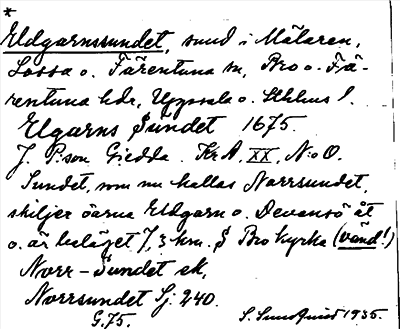 *
Eldgarnssundet, sund i Mälaren,
Lossa o. Färentuna sn, Bro o. Fä-
rentuna hdr, Uppsala o. Sthlms l.
Elgarns Sundet 1675.
J. P:son Giedda. Kr A, XX, N:o 0.
Sundet, som nu kallas Norrsundet,
skiljer öarna Eldgarn o. Devensö åt
o. är beläget 7,3 km. S Bro kyrka (vänd!)
Norr-Sundet ek,
Norrsundet Sj. 240.
G.75. S. Sundquist 1935.